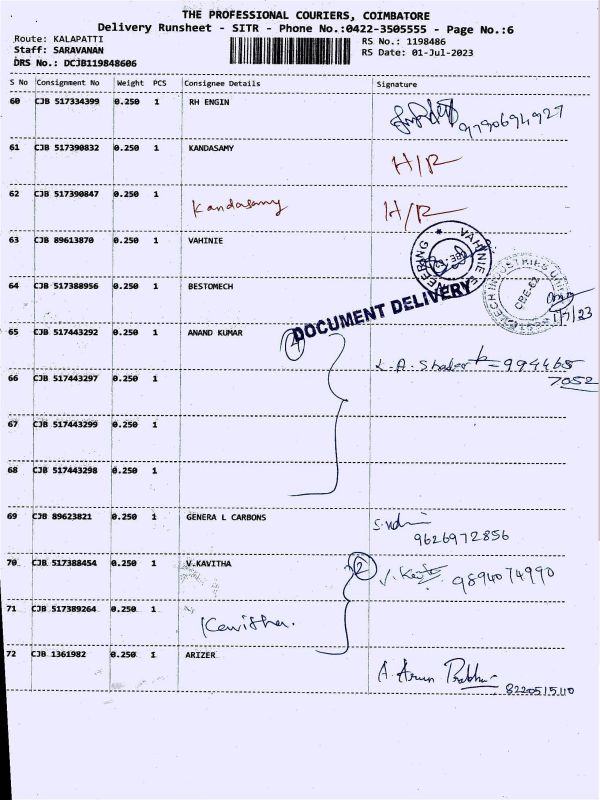 THE PROFESSIONAL COURIERS, COIMBATORE
Delivery Runsheet - SITR - Phone No.:0422-3505555 - Page No.:6
Route: KALAPATTI
Staff: SARAVANAN
DRS No.: DCJB119848606
RS No.: 1198486
RS Date: 01-Jul-2023
S No Consignment No Weight PCS Consignee Details Signature
60 CJB 517334399 0.250 1 RH ENGIN
9790694927
61 CJB 517390832 0.250 1 KANDASAMY H/R
62 CJB 517390847 0.250 1 Kandasamy H/R
63 CJB 89613870 0.250 1 VAHINIE
64 CJB 517388956 0.250 1 BESTOMECH
DOCUMENT DELIVERY
1/7/23
65 CJB 517443292 0.250 1 ANAND KUMAR 4
994465
7052
66 CJB 517443297 0.250 1
67 CJB 517443299 0.250 1
68 CJB 517443298 0.250 1
69 CJB 89623821 0.250 1 GENERA L CARBONS
9626972856
70 CJB 517388454 0.250 1 V.KAVITHA 2
9894074990
71 CJB 517389264 0.250 1 Kavitha.
72 CJB 1361982 0.250 1 ARIZER A. Arun Prabhu
8220515110